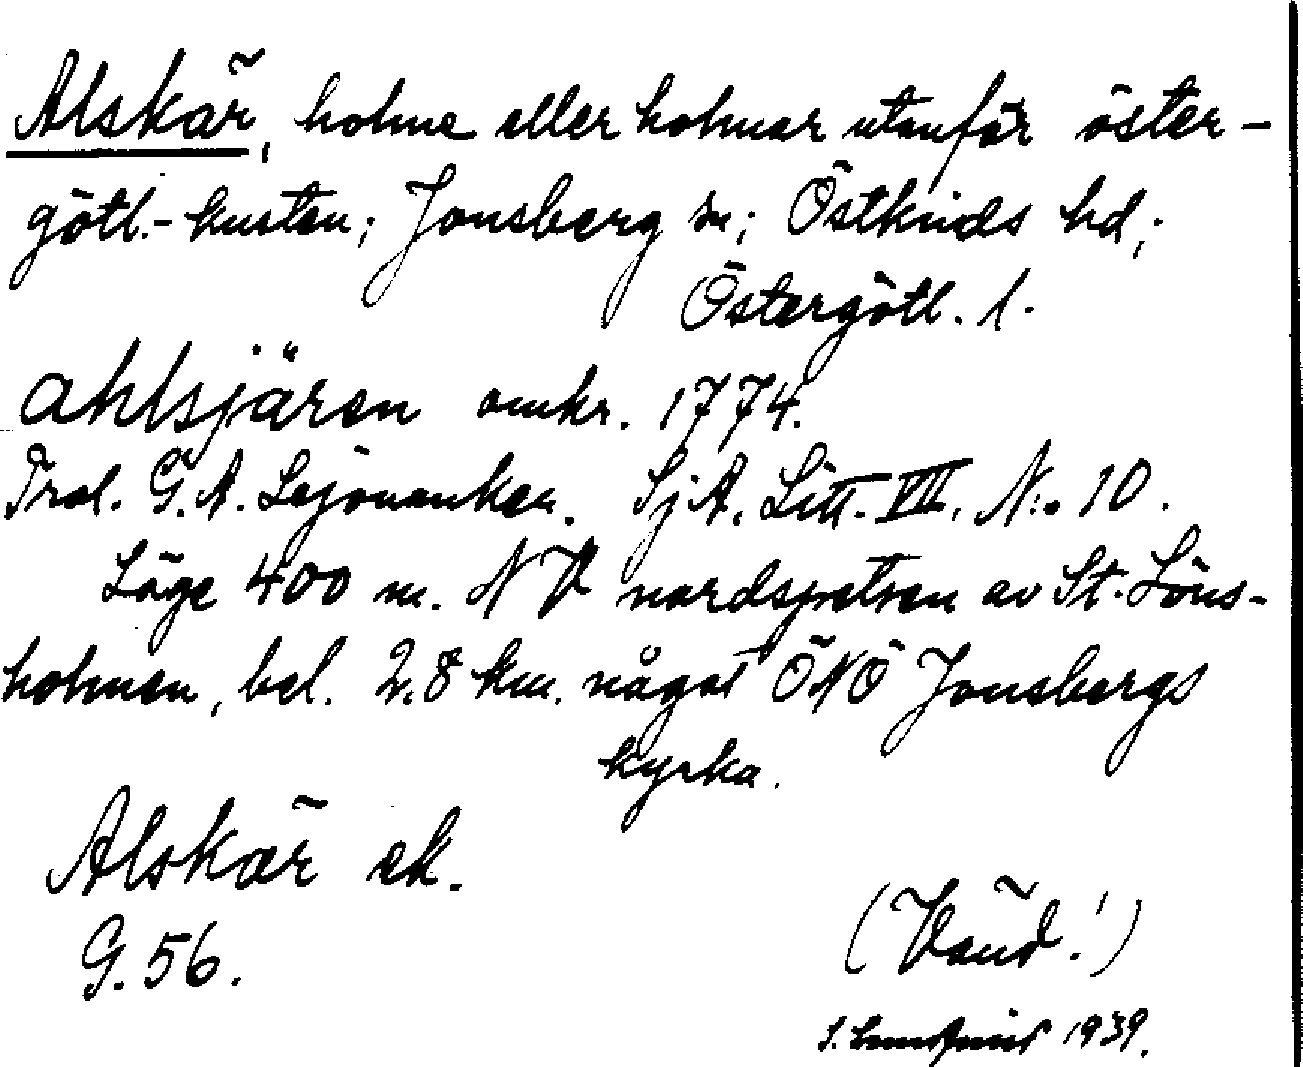 Alskär, holme eller holmar utanför öster-
götl.-kusten; Jonsberg sn; Östkinds hd;
Östergötl. l.
Ahlsjären omkr. 1774.
Trol. G. A. Lejonanker. SjA. Litt. VIII. N:o 10.
Läge 400 m. NV nordspetsen av St. Löns-
holmen, bel. 2,8 km. något ÖNÖ Jonsbergs
kyrka.
Alskär ek.
G. 56.
(Vänd!)
S. Lundqvist 1939.